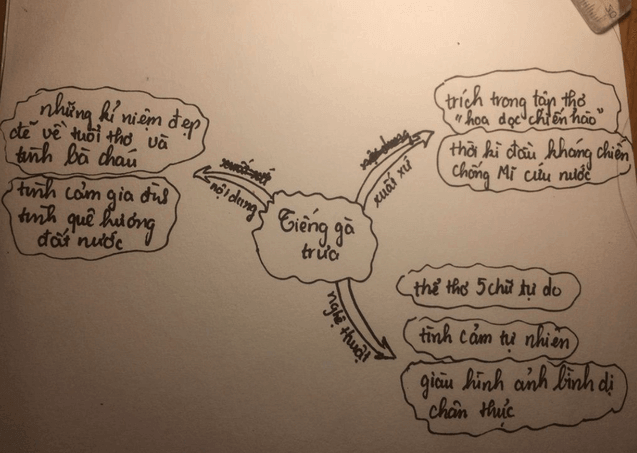 Tiếng gà
trưa
xuất xứ
trích trong tập thơ
"hoa dọc chiến hào"
thời kì đầu kháng chiến
chống Mĩ cứu nước
nội dung
những kỉ niệm đẹp
đẽ về tuổi thơ và
tình bà cháu
tình cảm gia đình
tình quê hương
đất nước
nghệ thuật
thể thơ 5 chữ tự do
tình cảm tự nhiên
giàu hình ảnh bình dị
chân thực